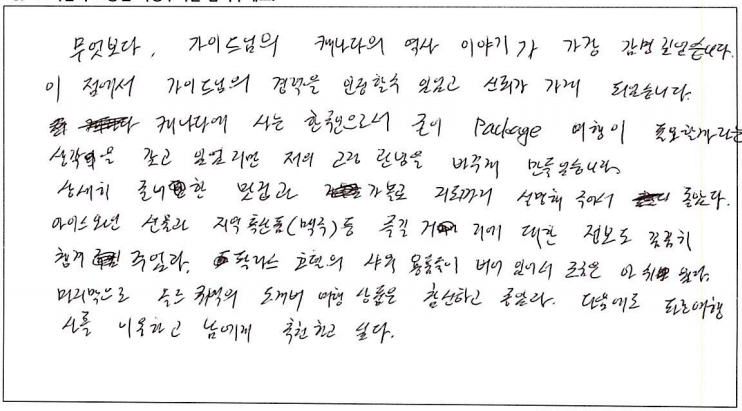 무엇보다, 가이드님의 캐나다의 역사 이야기가 가장 감명 깊었습니다.
이 점에서 가이드님의 경력을 인정할수 있었고 신뢰가 가게 되었습니다.
캐나다에 사는 한국인으로서 굳이 Package 여행이 필요할까라는
생각을 갖고 있었지만 저의 고정관념을 바꾸게 만들었습니다.
상세히 준비한 맛집과 가볼곳 지도까지 설명해 주어서 좋았다.
아이스와인 선물과 지역 특산품(맥주)등 즐길 거리에 대한 정보도 꼼꼼히
챙겨 주었다. 호텔의 샤워 용품들이 비어 있어서 조금은 아쉬웠다.
마지막으로 여행 상품은 참신하고 좋았다. 다음에도 여행
사를 이용하고 남에게 추천하고 싶다.